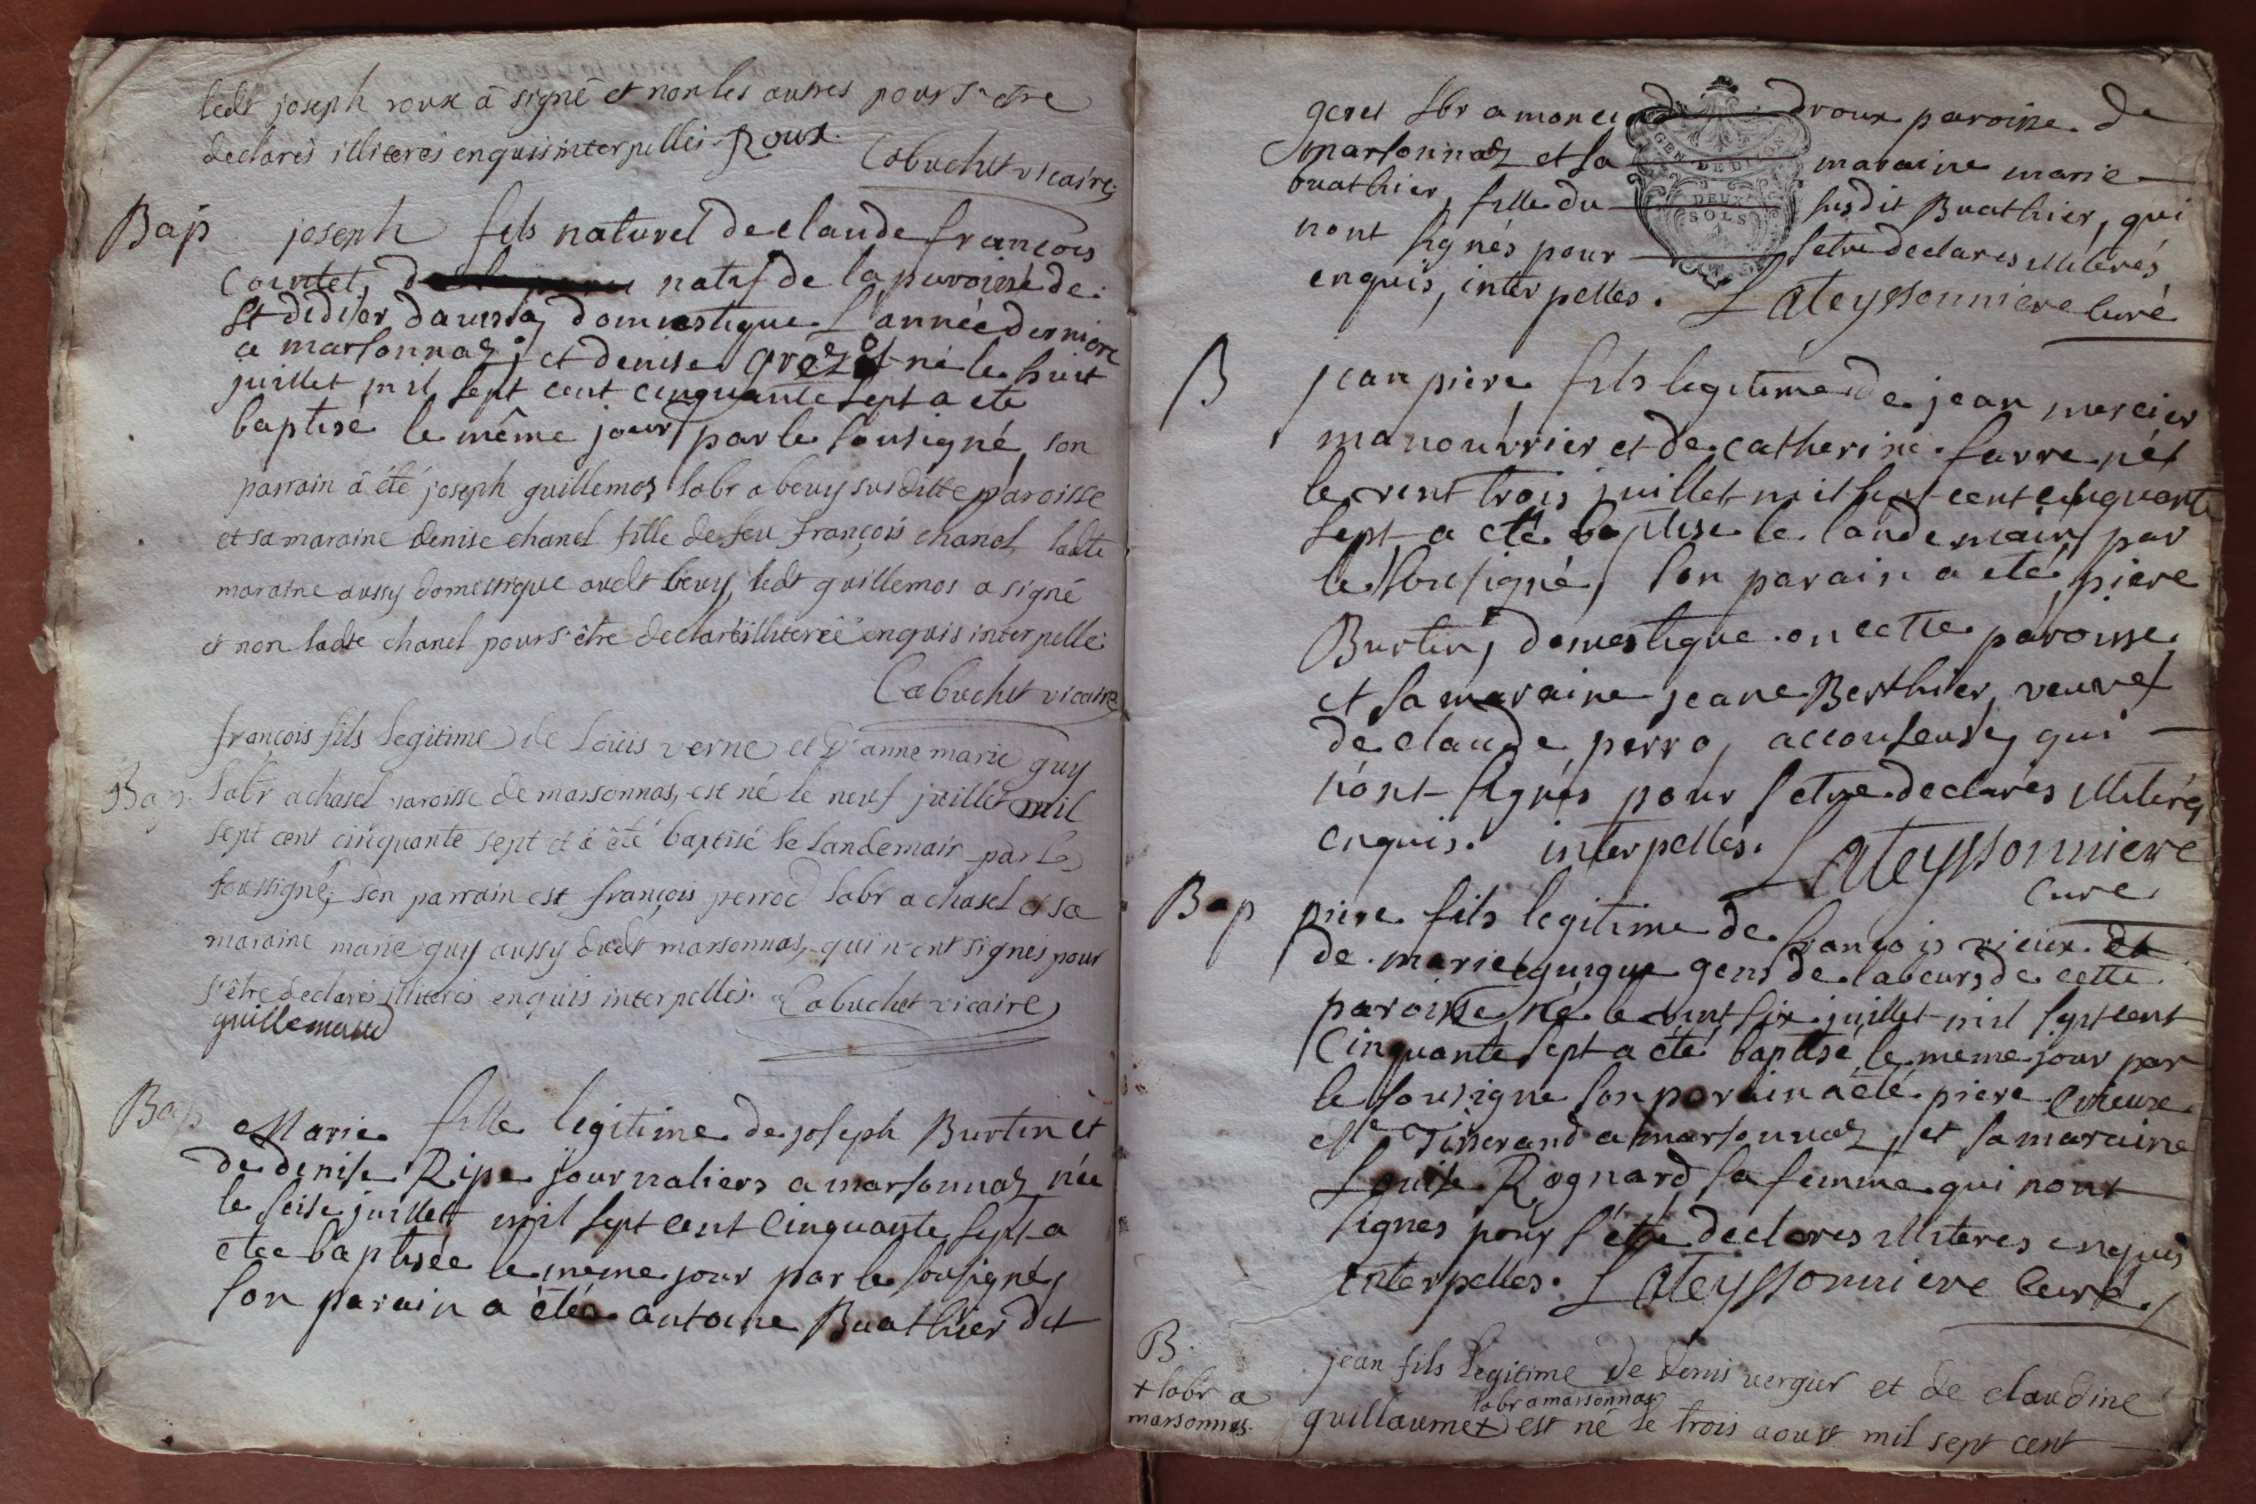 ledt joseph roux á signé et non les autres pour s'etre
declarés illiterés enquis interpellés Roux.
Cabuchet vicaire
Bap joseph fils naturel de claude françois
Cointet, natif de la paroisse de
St didier daussia, domestique L'année derniere
a marsonnaz; et denise grozot né le huit
juillet mil sept cent cinquante sept a eté
baptisé le même jour par le sousigné, son
parrain á été joseph guillemoz labr a beuy susditte paroisse
et sa maraine denise chanel fille de feu françois chanel ladte
maraine aussy domestique audt beuy, ledt guillemos a signé
et non ladte chanel pour s'être declaré illiterée enquis interpellé
Cabuchet vicaire
françois fils legitime de Loüis verne et d'anne marie guy
Bap labr a chasel paroisse de marsonnas, est né le neuf juillet mil
sept cent cinquante sept et á été baptisé le landemain par le
soussigné; son parrain est françois perrod labr a chasel et sa
maraine marie guy aussy dudt marsonnas, qui n'ont signés pour
s'être declarés illiterés enquis interpellés. Cabuchet vicaire
guillemaud
Bap Marie fille legitime de joseph Burtin et
de denise Ripe journaliers a marsonnaz née
le seise juillet mil sept cent cinquante sept a
etee baptisée le meme jour par le sousigné,
son parain a étée antoine Buathier dit
geret lbr a moncindroux paroisse de
marsonnaz et sa maraine marie
buathier, fille du susdit Buathier, qui
nont signés pour setre declares illiterés
enquis, interpelles. Lateyssonniere curé
GEN. DE DIJON
DEUX
SOLS
B jean piere fils legitime de jean mercier
manouvrier et de catherine favre né
le vent trois juillet mil sept cent cinquante
sept a eté baptise le landemain par
le sousigné, son parain a eté piere
Burtin, domestique en cette paroisse
et sa maraine jeane Berthier, veuve
de claude perro, accouseuse, qui
nont signés pour setre declarés illiterés
enquis. interpellés. Lateyssonniere
curé
Bap piere fils legitime de françois vieux et
de marie guigue gens de labeurs de cette
paroisse né le vint six juillet mil sept cent
Cinquante sept a été baptisé le meme jour par
le sousigne son parain a eté piere vieux
me Tisserand a marsonnaz, et sa maraine
Louise Rognard sa femme qui nont
signes pour s'étre declares illiteres enquis
interpelles. Lateyssonniere curé
B. jean fils legitime de denis vergier et de claudine
+ labr a
marsonnas.
labr a marsonnas
guillaume + est né le trois aoust mil sept cent